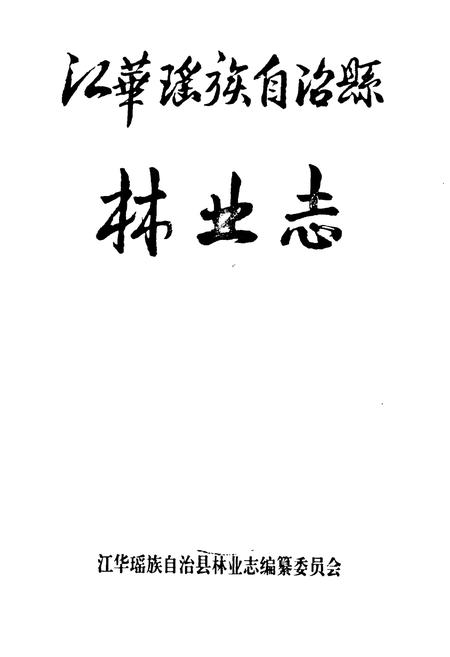 江華瑶族自治縣
林业志
江华瑶族自治县林业志编纂委员会